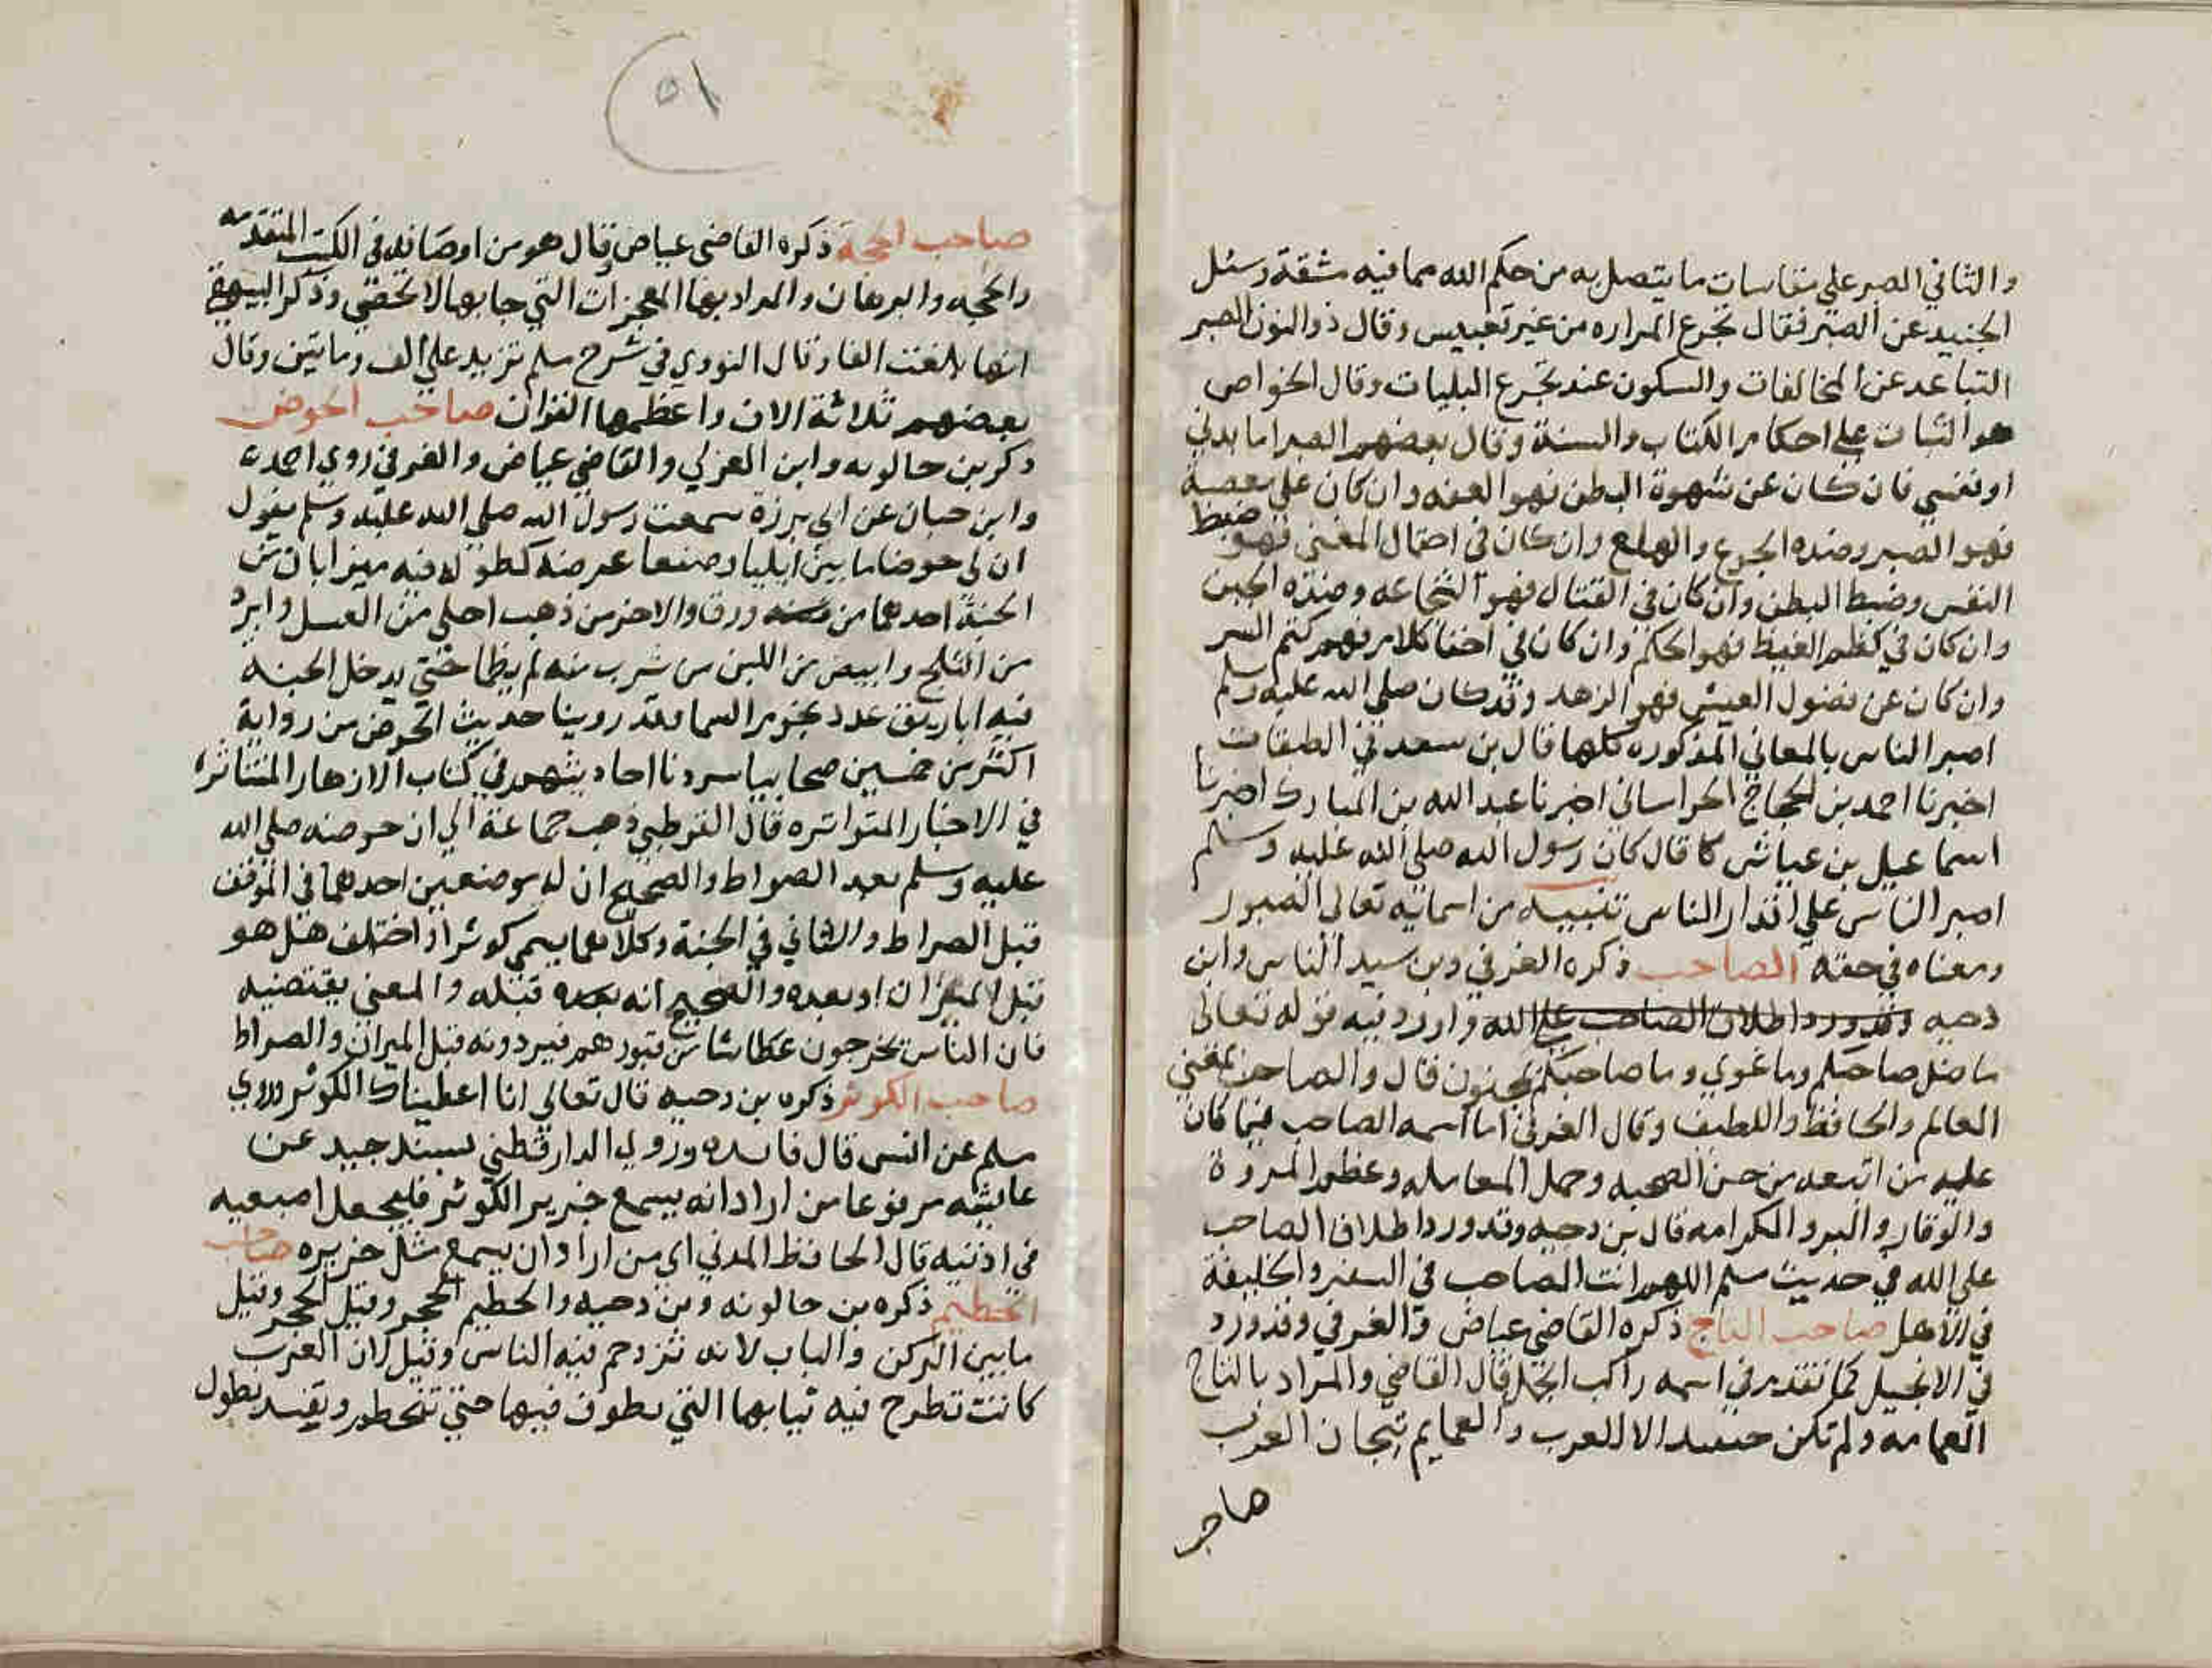 والثاني الصبر علي مقاسات ما يتصل به من حكم الله مما فيه مشقة وسئل
الجنيد عن الصبر فقال تجرع المراره من غير تعبيس وقال ذو النون الصبر
التباعد عن المخالفات والسكون عند تجرع البليات وقال الخواص
هو الثبات علي احكام الكتاب والسنة وقال بعضهم الصبر اما بدني
او نفسي فان كان عن شهوة البطن فهو العفه وان كان علي معصية
فهو الصبر وضده الجزع والهلع وان كان في احتمال الغني فهو ضبط
النفس وضبط البطن وان كان في القتال فهو الشجاعه وضده الجبن
وان كان في كظم الغيظ فهو الحكم وان كان في اخفا كلام فهو كتم السر
وان كان عن فضول العيش فهو الزهد وقد كان صلي الله عليه وسلم
اصبر الناس بالمعاني المذكوره كلها قال بن سعد في الطبقات
اخبرنا احمد بن الحجاج الخراساني اخبرنا عبد الله بن المبارك اخبرنا
اسماعيل بن عياش كا قال كان رسول الله صلي الله عليه وسلم
اصبر الناس علي اقذار الناس تنبيه من اسمائيه تعالي الصبور
ومعناه في حقه الصاحب ذكره العزفي وبن سيد الناس وابن
دحيه وقد ورد اطلاق الصاحب علي الله واورد فيه قوله تعالى
ما ضل صاحبكم وما غوي وما صاحبكم بمجنون قال والصاحب بمعني
العالم والحافظ واللطيف وقال العزفي اما اسمه الصاحب فبما كان
عليه من اتبعه من حسن الصحبه وجمل المعامله وعظم المروة
والوقار والبر والكرامه قال بن دحيه وقد ورد اطلاق الصاحب
علي الله في حديث مسلم اللهم انت الصاحب في السفر والخليفة
في الاهل صاحب التاج ذكره القاضي عياض والعزفي وقد ورد
في الانجيل كما تقدم في اسمه راكب الجمل قال القاضي والمراد بالتاج
العمامه ولم تكن حينيد الا للعرب والعمايم تيجان العرب
صاحب
٥١
صاحب الحجة ذكره القاضي عياض وقال هو من اوصافه في الكتب المتقدمه
والحجه والبرهان والمراد بها المعجزات التي جا بها لا تحصي وذكر البيهقي
انها بلغت الفا وقال النووي في شرح مسلم تزيد علي الف وماتين وقال
بعضهم ثلاثة الاف واعظمها القران صاحب الحوض
ذكر بن خالويه وابن العربي والقاضي عياض والعزفي روي احمد
وابن حبان عن ابي برزة سمعت رسول الله صلي الله عليه وسلم يقول
ان لي حوضا ما بين ايليا وصنعا عرضه كطوله فيه ميزابان من
الجنة احدهما من ورق والاخر من ذهب احلي من العسل وابرد
من الثلج وابيض من اللبن من شرب منه لم يظما حتي يدخل الجنه
فيه اباريق عدد نجوم السما وقد روينا حديث الحوض من رواية
اكثر من خمسين صحابيا سردنا احاديثهم في كتاب الازهار المتناثره
في الاخبار المتواتره قال القرطبي ذهب جماعة الي ان حوضه صلي الله
عليه وسلم بعد الصراط والصحيح ان له موضعين احدهما في الموقف
قبل الصراط والثاني في الجنة وكلاهما يسمي كوثرا واختلف هل هو
قبل الميزان او بعده والصحيح انه بعده قبله والمعني يقتضيه
فان الناس يخرجون عطاشا من قبورهم فيردونه قبل الميزان والصراط
صاحب الكوثر ذكره بن دحيه قال تعالي انا اعطيناك الكوثر وروي
مسلم عن انس قال وروي الدارقطني بسند جيد عن
عايشه مرفوعا من اراد انه يسمع خرير الكوثر فليجعل اصبعيه
في اذنيه قال الحافظ المدني اي من اراد ان يسمع مثل خريره صاحب
الحطيم ذكره بن خالويه وبن دحيه والحطيم الحجر وقيل الحجر وقيل
ما بين الركن والباب لانه تزدحم فيه الناس وقيل لان العرب
كانت تطرح فيه ثيابها التي تطوف فيها حتي تنحطم وتفسد بطول